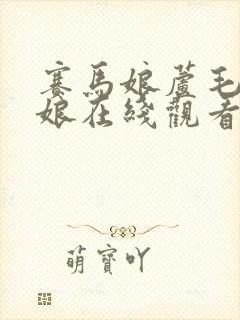 賽馬娘蘆毛
娘在綫觀看
萌寶吖